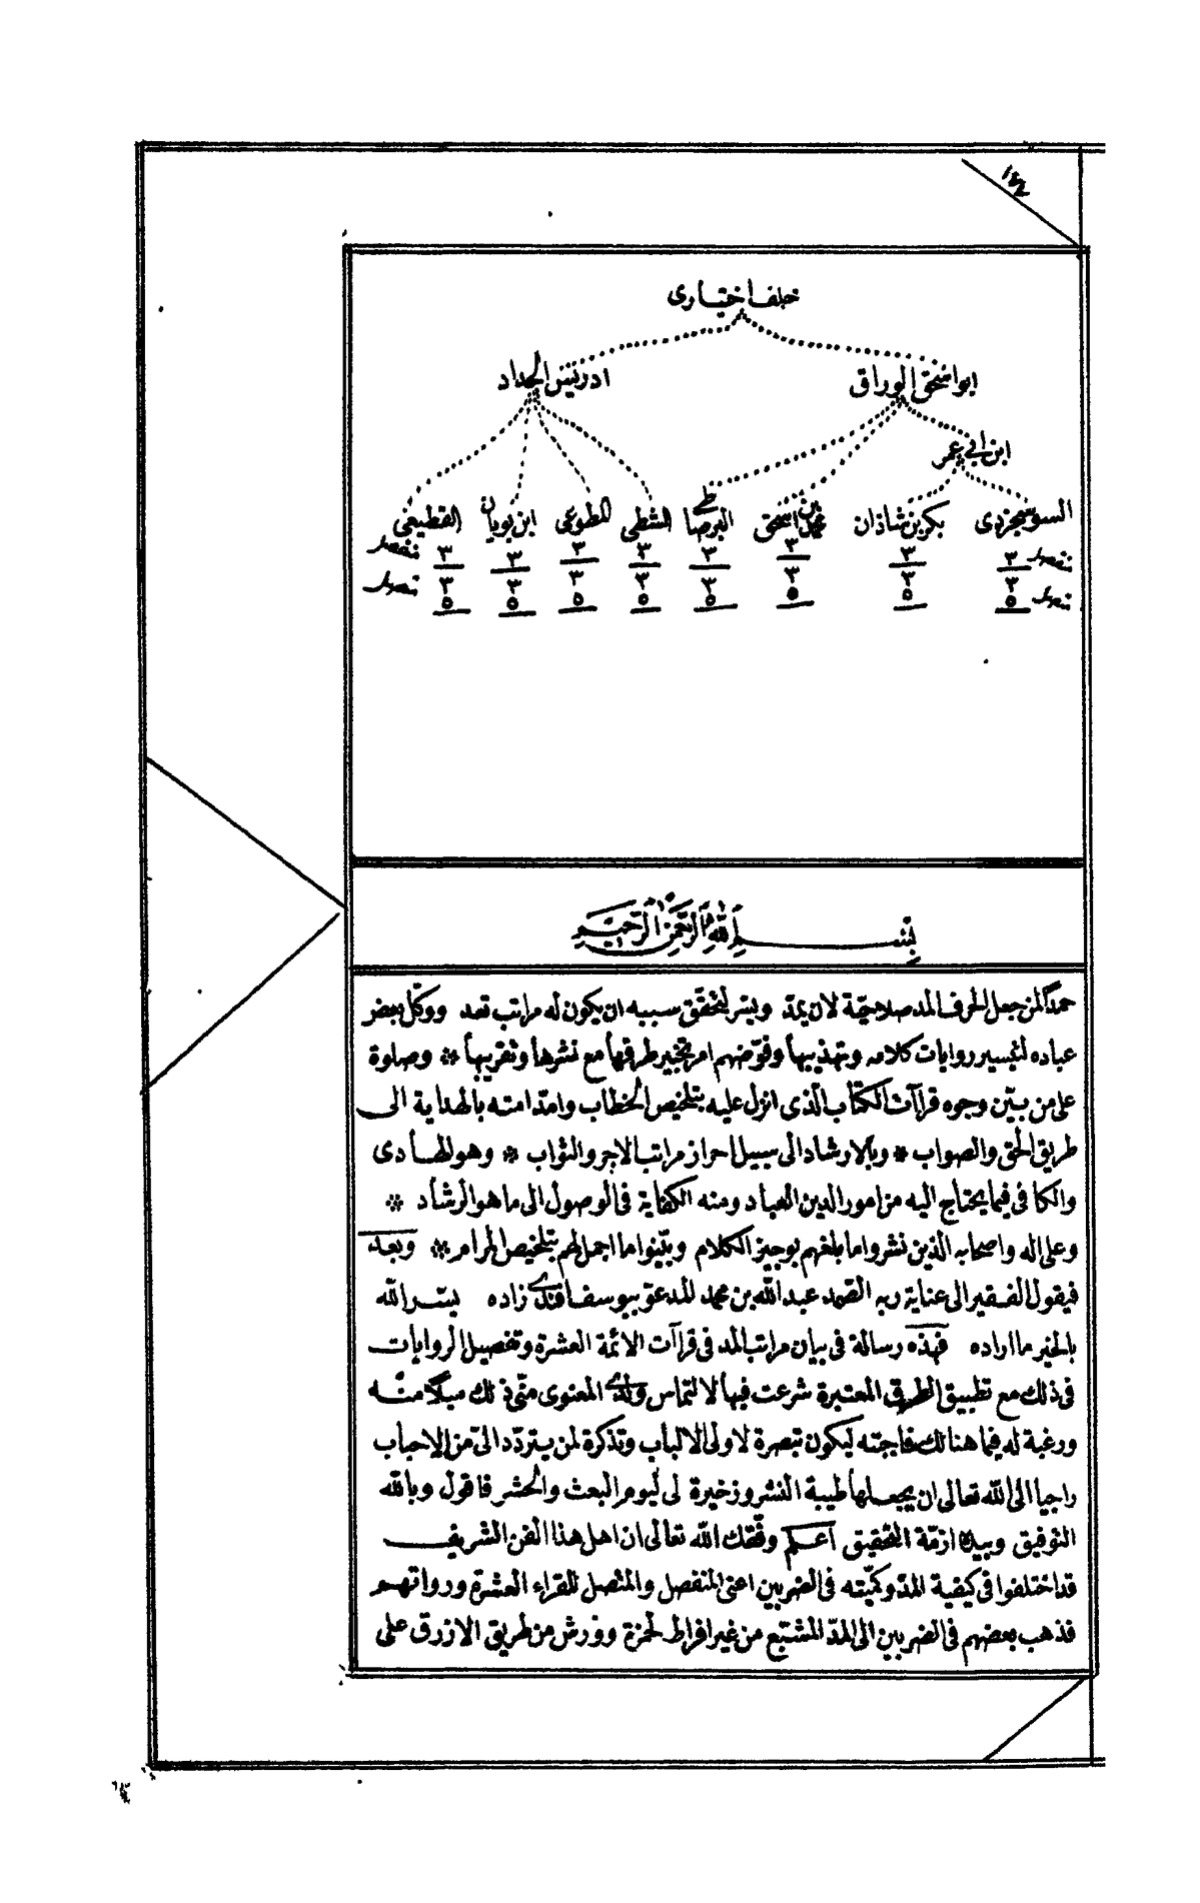 ١٤٤
خلف اختيارى
ابو اسحق الوراق ادريس الحداد
ابن ابى عمر
السوسنجردى بكر بن شاذان محمد بن اسحق البرصاطى الشطى المطوعى ابن بويان القطيعى
٣ ٣ ٣ ٣ ٣ ٣ ٣ ٣
٣ ٣ ٣ ٣ ٣ ٣ ٣ ٣
٥ ٥ ٥ ٥ ٥ ٥ ٥ ٥
بسم الله الرحمن الرحيم
حمدا لمن جعل الحرف المد صلاحية لان يمد ويسر لتحقق سببه ان يكون له مراتب تعد ووكل بعض
عباده لتيسير روايات كلامه وتهذيبها وفوضهم امر تحبير طرقها مع نشرها وتقريبها * وصلوة
على من بين وجوه قراآت الكتاب الذى انزل عليه بتلخيص الخطاب وامد امته بالهداية الى
طريق الحق والصواب * وبالارشاد الى سبيل احراز مراتب الاجر والثواب * وهو الهادى
والكافى فيما يحتاج اليه من امور الدين العباد ومنه الكفاية فى الوصول الى ما هو الرشاد *
وعلى اله واصحابه الذين نشروا ما بلغهم بوجيز الكلام وبينوا ما اجمل لهم بتلخيص المرام * وبعد
فيقول الفقير الى عناية ربه الصمد عبد الله بن محمد المدعو بيوسف افندى زاده يسر الله
بالخير ما اراده فهذه رسالة فى بيان مراتب المد فى قراآت الائمة العشرة وتفصيل الروايات
فى ذلك مع تطبيق الطرق المعتبرة شرعت فيها لالتماس ولدى المعنوى منى ذلك ميلا منه
ورغبة له فيما هنالك فاجبته ليكون تبصرة لاولى الالباب وتذكرة لمن يتردد الى من الاحباب
راجيا الى الله تعالى ان يجعلها طيبة النشر وزخيرة لى ليوم البعث والحشر فاقول وبالله
التوفيق وبيده ازمة التحقيق اعلم وفقك الله تعالى ان اهل هذا الفن الشريف
قد اختلفوا فى كيفية المد وكميته فى الضربين اعنى المنفصل والمتصل للقراء العشرة ورواتهم
فذهب بعضهم فى الضربين الى المد المشبع من غير افراط لحمزة وورش من طريق الازرق على